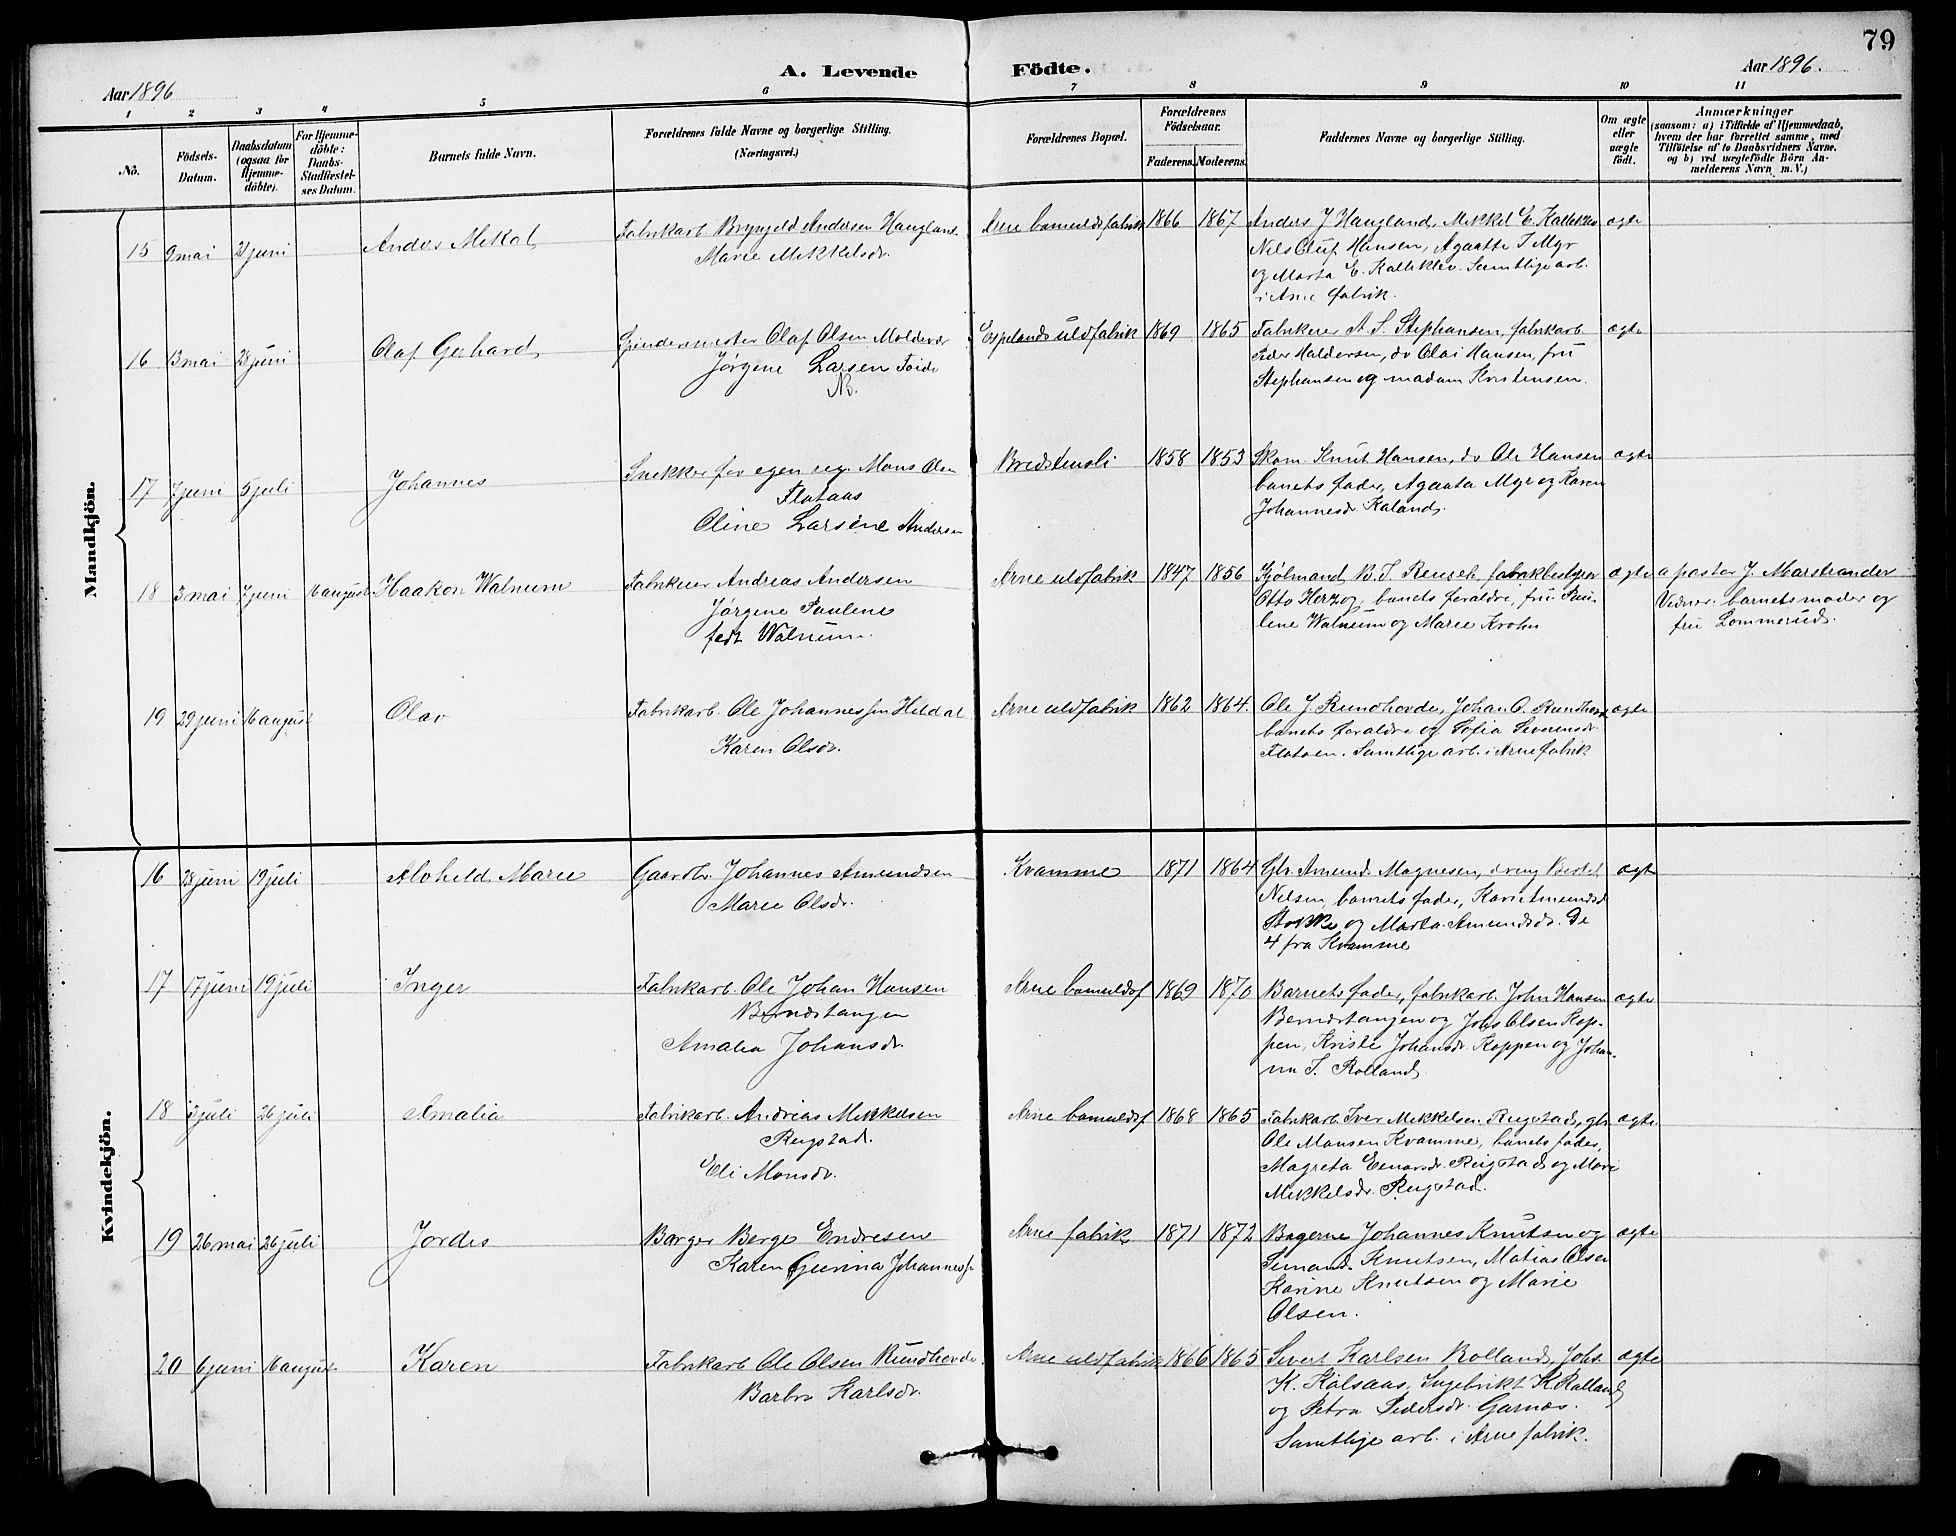 79
A. Levende Födte.
Aar 1896
Aar 1896.
1 2 3 4 5 6 7 8 9 10 11
No.
Födsels-Datum.
Daabsdatum (ogsaa for Hjemme-döbte).
For Hjemme-döbte: Daabs-Stadfæstel-ses Datum.
Barnets fulde Navn.
Forældrenes fulde Navne og borgerlige Stilling.
(Næringsvei.)
Forældrenes Bopæl.
Forældrenes Födselsaar.
Faderens. Moderens.
Faddernes Navne og borgerlige Stilling.
Om ægte eller uægte födt.
Anmærkninger
(saasom: a) i Tilfælde af Hjemmedaab,
hvem der har forrettet samme, med
Tilföielse af to Daabsvidners Navne,
og b) ved uægtefödte Börn An-
melderens Navn m. V.)
Mandkjön.
15 9 mai 21 juni
Fabrikarb. Andersen Haugland
Marie Mekkelsdr.
Arne bomuldsfabrik 1866 1867
Anders J Haugland, Mekkel E. Kalleklev
Nils Oluf Hansen, Agaatte J Myr
og Marta E. Kalleklev. Samtlige arb.
i Arne fabrik.
ægte
16 13 mai 28 juni
Olaf Gerhard
Spindemester Olaf Olsen
Jørgene Larsen
Espelands uldfabrik 1869 1865
Fabrikeier A. S. Stephansen, fabrikarb.
Peder Haldorsen, do Olai Hansen, fru
Stephansen og madam Kristensen.
ægte
17 7 juni 5 juli
Johannes
Snekker for egen regn. Mons Olsen
Flataas
Oline Larsine Andersen
Bredstensli 1858 1853
Skom. Knut Hansen, do Ole Hansen
barnets fader, Agaata Myr og Karen
Johannesdr. Kaland.
ægte
18 3 mai 7 juni 16 august
Haakon Walnum
Fabrikeier Andreas Andersen
Jørgene Pauline
født Walnum.
Arne uldfabrik 1847 1856
Kjøbmand B. T. Reusch, fabrikbestyrer
Otto Herzog, barnets foraldre, fru Pau-
line Walnum og Marie Krohn
ægte
a pastor J. Marstrander
Vidner: barnets moder og
fru Lommerud.
19 29 juni 16 august
Olav
Fabrikarb. Ole Johannessen Heldal
Karen Olsdr.
Arne uldfabrik 1862 1864.
Ole J. Rundhovde, Johan O. Rundhovde
barnets foraldre og Sofia Severinsdr.
Flataen. Samtlige arb. i Arne fabrik
ægte
Kvindekjön.
16 28 juni 19 juli
Alvhild Marie
Gaardbr. Johannes Amundsen
Marie Olsdr.
Kvamme 1871 1864
Gbr. Amund Magnesen, dreng Bertel
Nilsen, barnets fader, Kari Amundsdr
Stokke og Marta Amundsdr. De
4 fra Kvamme
ægte
17 17 juni 19 juli
Inger
Fabrikarb. Ole Johan Hansen
Berndstangen
Amalia Johansdr.
Arne bomuldsf 1869 1870
Barnets fader, fabrikarb. John Hansen
Berndstangen og Johs Olsen Kop-
pen, Kristi Johansdr. Koppen og Johan-
na J. Rolland
ægte
18 juli 26 juli
Amalia
Fabrikarb. Andreas Mikkelsen
Reigstad.
Eli Monsdr.
Arne bomuldsf 1868 1865
Fabrikarb. Iver Mekkelsen Reigstad, gbr
Ole Monsen Kvamme, barnets fader,
Magreta Einarsdr. Reigstad og Mari
Mekkelsdr. Reigstad.
ægte
19 26 mai 26 juli
Jordis
Berge Endresen
Karen Gurina Johannessen
Arne fabrik 1871 1872
Bagerne Johannes Knutsen og
Simand Knutsen, Matias Olsen
Karine Knutsen og Marie
Olsen.
ægte
20 6 juni 16 august
Karen
Fabrikarb. Ole Olsen Rundhovde.
Barbro Karlsdr.
Arne uldfabrik 1866 1865
Sivert Karlsen Rolland, Johs.
K. Kolsaas, Ingebrikt K Rolland
og Petra Pedersdr. Garnæs.
Samtlige arb. i Arne fabrik.
ægte